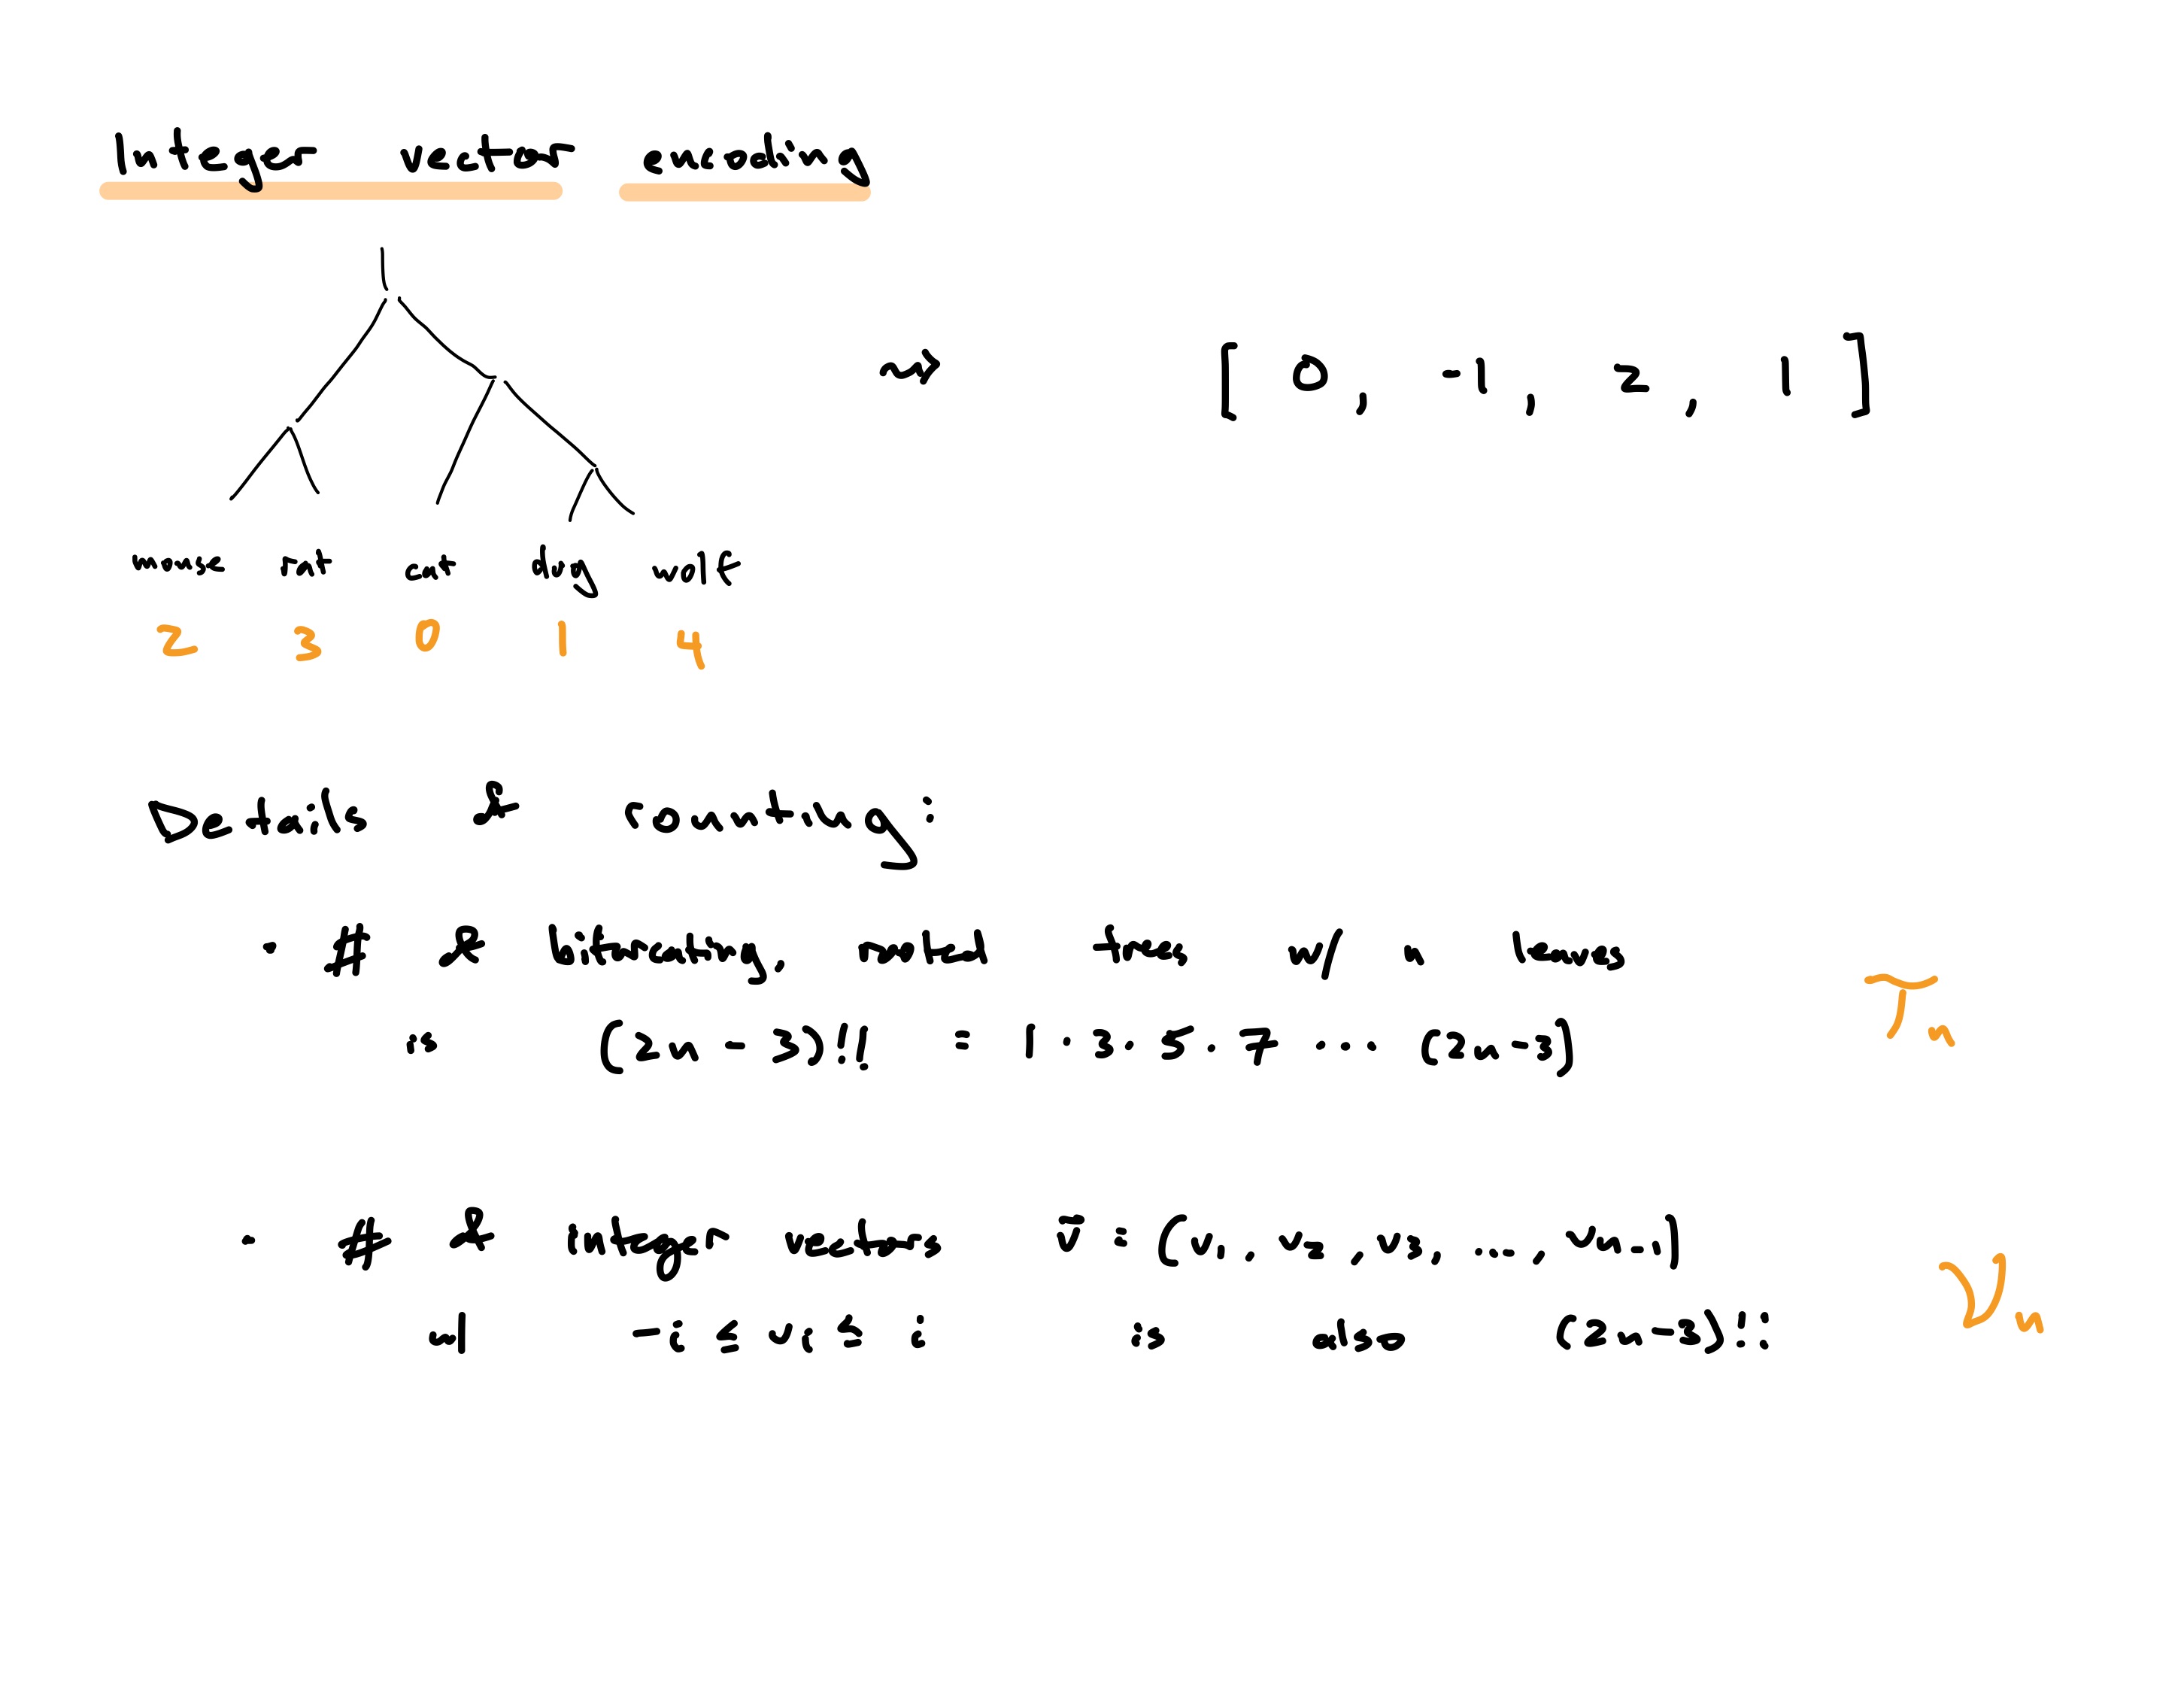 Integer vector encoding
⇝ [ 0, -1, 2, 1 ]
mouse rat cat dog wolf
2 3 0 1 4
Details & counting:
- # of bifurcating, rooted trees w/ n leaves
is (2n-3)!! = 1·3·5·7 ... (2n-3)
𝒯n
- # of integer vectors v̄ = (v1, v2, v3, ..., vn-1)
w/ -i ≤ vi ≤ i is also (2n-3)!!
𝒱n